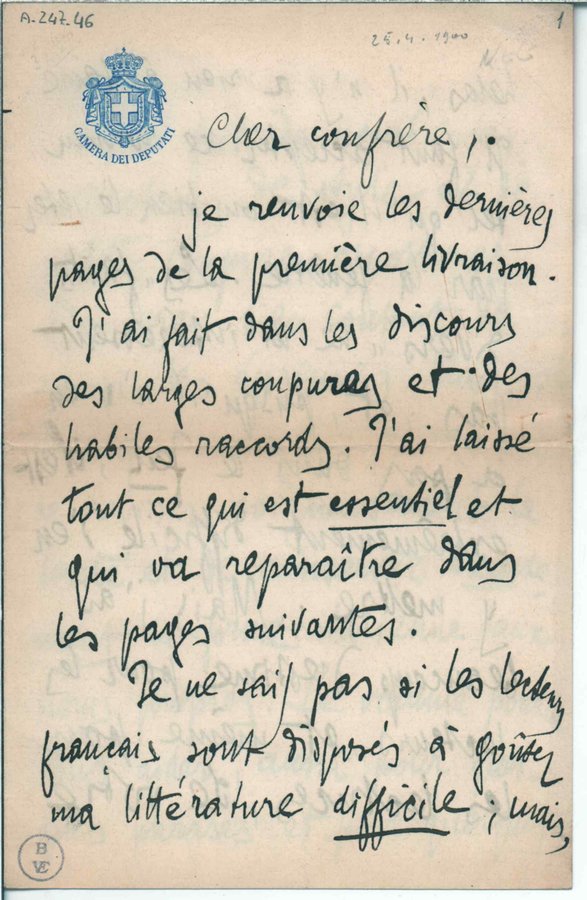 A.247.46
1
25.4.1900
CAMERA DEI DEPUTATI
Cher confrère,
je renvoie les dernières
pages de la première livraison.
J'ai fait dans les discours
des larges coupures et des
habiles raccords. J'ai laissé
tout ce qui est essentiel et
qui va reparaître dans
les pages suivantes.
Je ne sais pas si les lecteurs
français sont disposés à goûter
ma littérature difficile ; mais,
B
VE